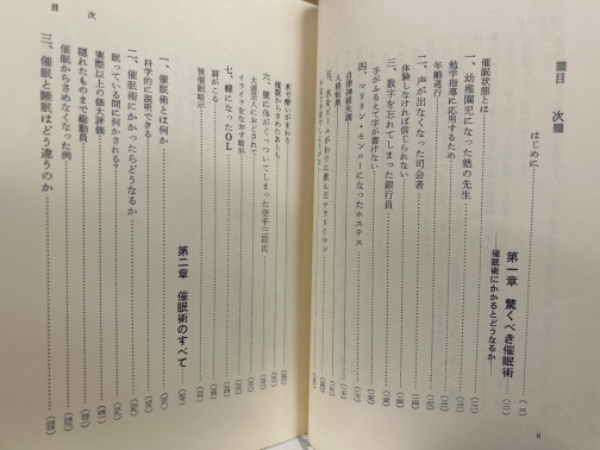 ■目 次■
はじめに
第一章 驚くべき催眠術
――催眠術にかかるとどうなるか
催眠状態とは
一、幼稚園児になった塾の先生
勉学指導に応用するため
年齢退行
二、声が出なくなった司会者
体験しなければ信じられない
三、数字を忘れてしまった銀行員
手がふるえて字が書けない
四、マリリン・モンローになったホステス
自律神経失調
人格転換
五、水をビールがわりに飲んだサラリーマン
水で酔いがまわる
催眠からさめたあとも
六、壁に体がくっついてしまった空手三段氏
大道芸人におどされて
イライラをなおす暗示
七、蝶になったOL
肩がこる
後催眠暗示
第二章 催眠術のすべて
一、催眠術とは何か
科学的に説明できる
二、催眠術にかかったらどうなるか
眠っている間に何かされる?
実際以上の価大評価
隠れたものまで総動員
催眠からさめなくなった例
三、催眠と睡眠はどう違うのか
6
目 次